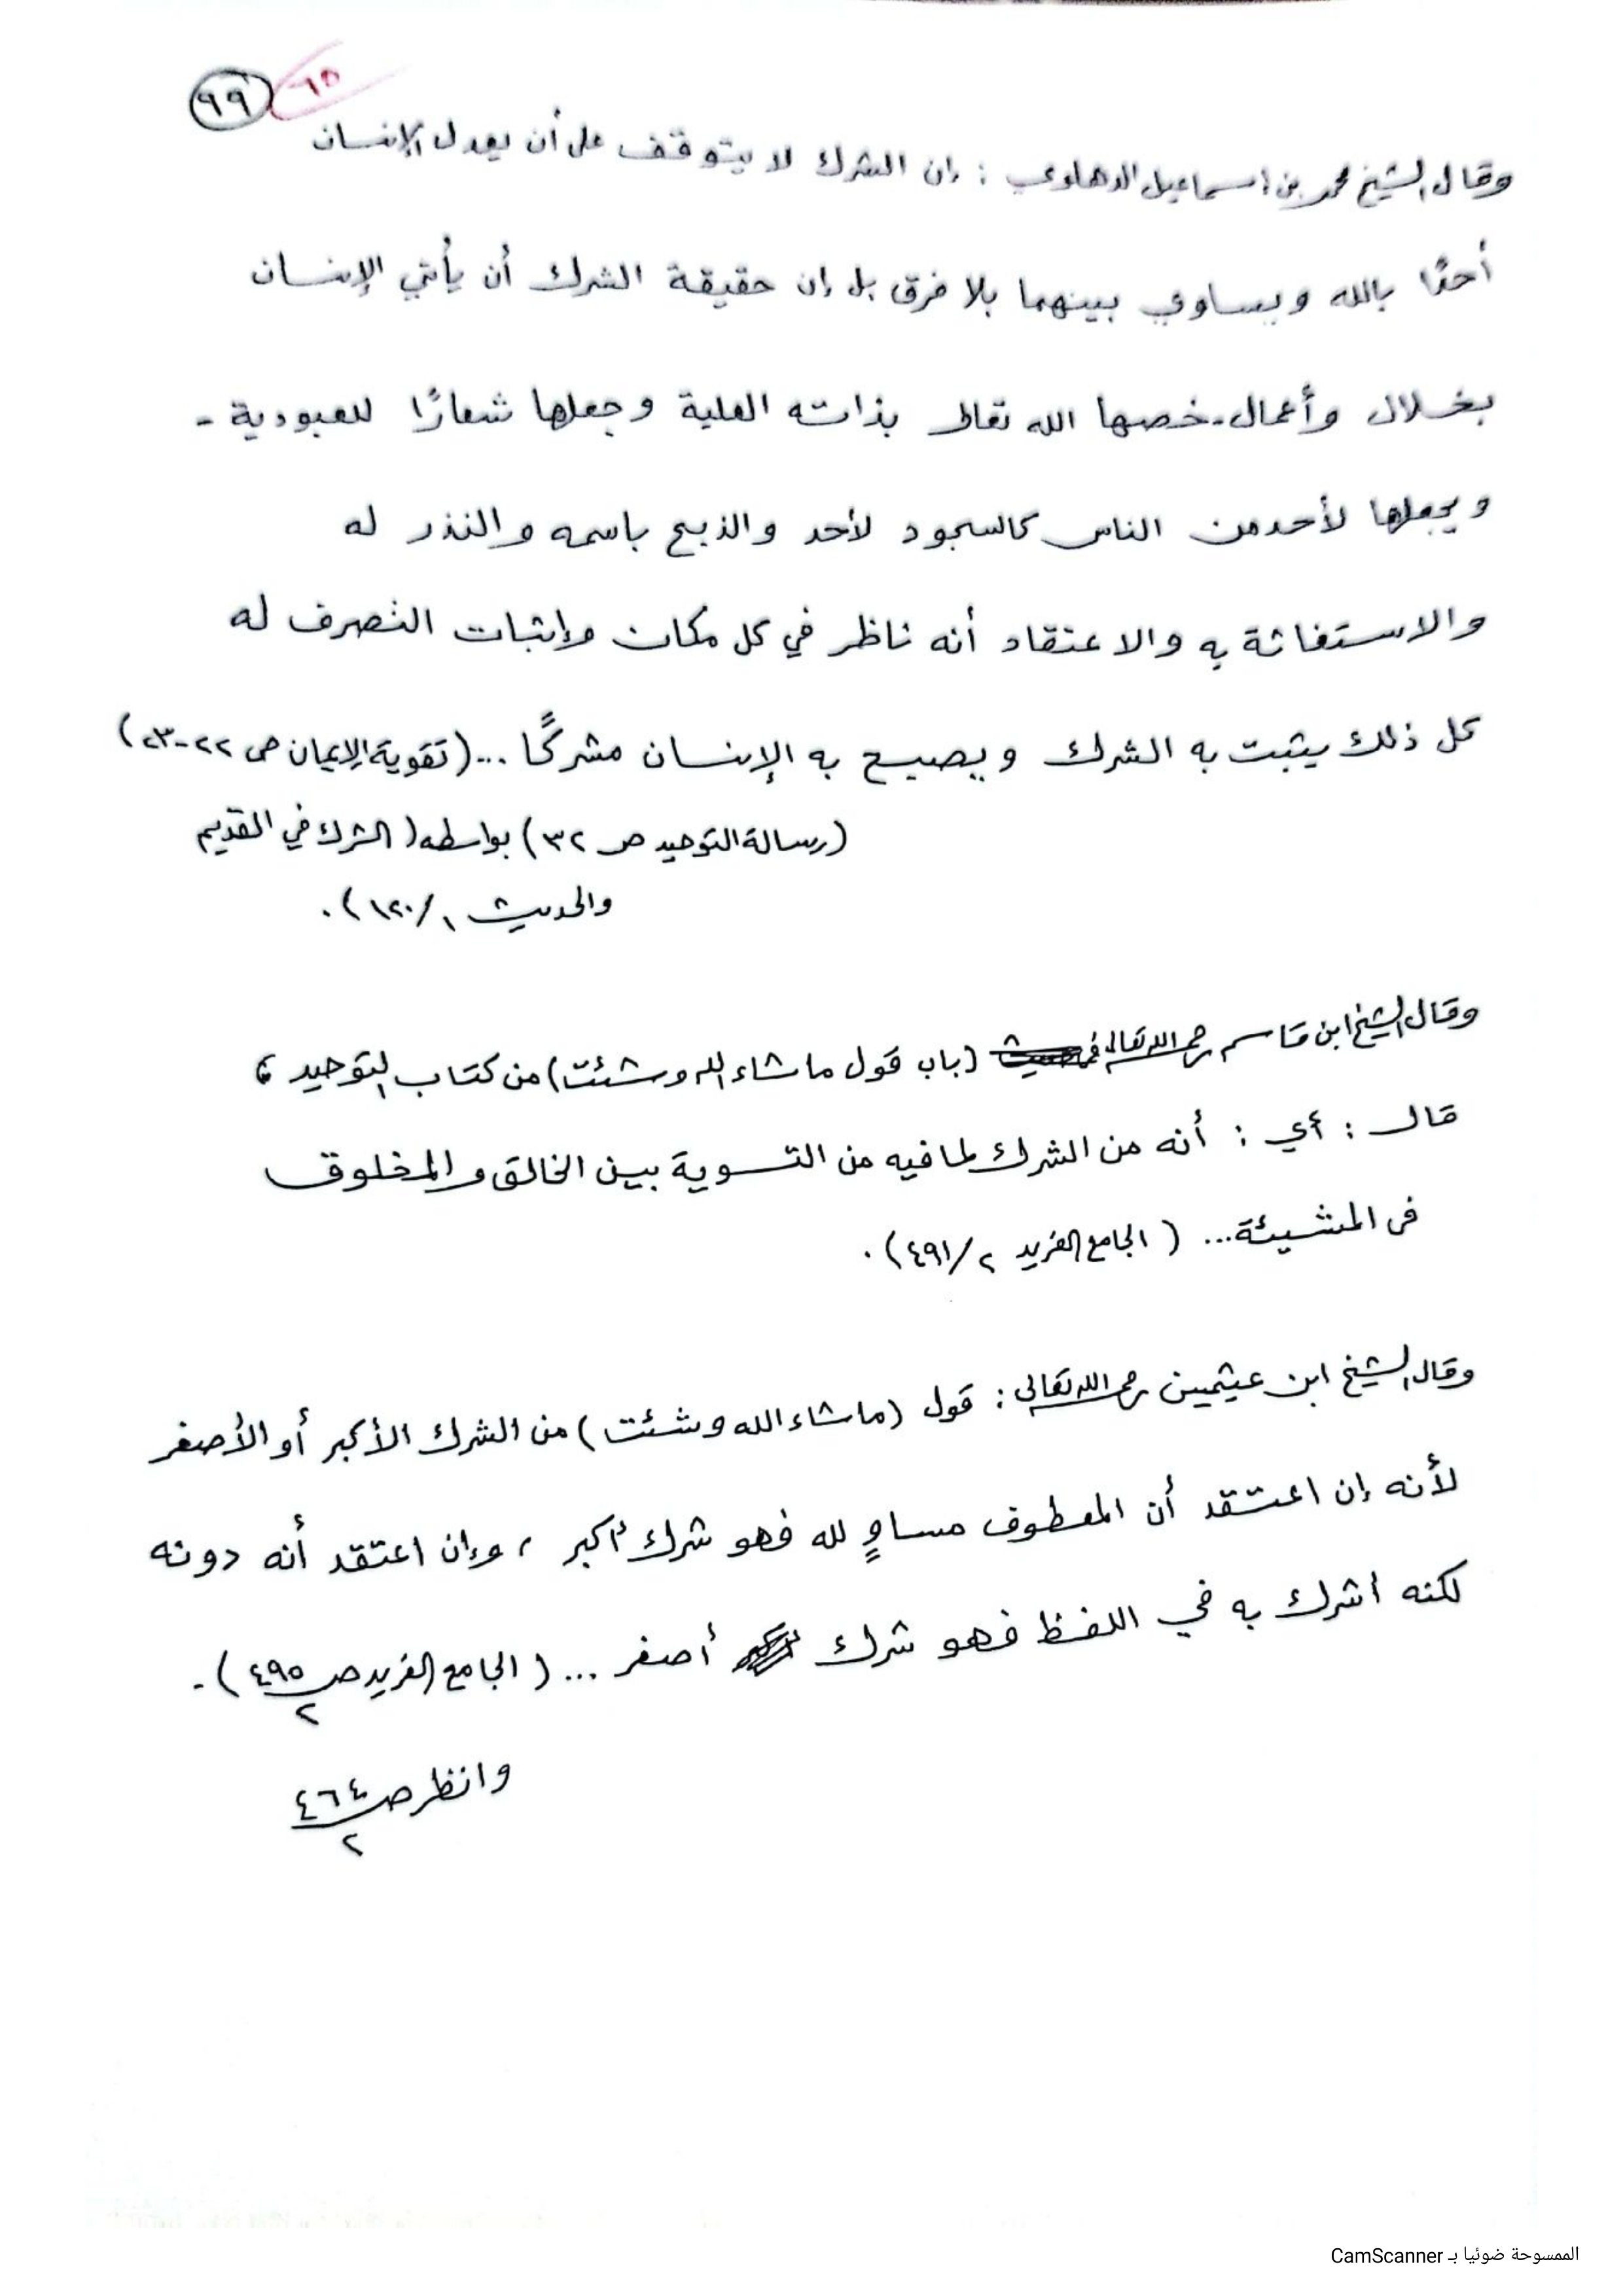 ٩٩ ٦٥
وقال الشيخ محمد بن إسماعيل الدهلوي : إن الشرك لا يتوقف على أن يعدل الإنسان
أحدًا بالله ويساوي بينهما بلا فرق بل إن حقيقة الشرك أن يأتي الإنسان
بخلال وأعمال - خصها الله تعالى بذاته العلية وجعلها شعارًا للعبودية -
ويجعلها لأحد من الناس كالسجود لأحد والذبح باسمه والنذر له
والاستغاثة به والاعتقاد أنه ناظر في كل مكان وإثبات التصرف له
كل ذلك يثبت به الشرك ويصبح به الإنسان مشركًا ... (تقوية الإيمان ص ٢٢-٢٣)
(رسالة التوحيد ص ٣٢) بواسطه (الشرك في القديم
والحديث ١/١٢٠).
وقال الشيخ ابن قاسم رحمه الله تعالى في (باب قول ما شاء الله وشئت) من كتاب التوحيد ،
قال : أي : أنه من الشرك لما فيه من التسوية بين الخالق والمخلوق
في المشيئة... (الجامع الفريد ٢/٤٩١).
وقال الشيخ ابن عيثمين رحمه الله تعالى : قول (ما شاء الله وشئت) من الشرك الأكبر أو الأصغر
لأنه إن اعتقد أن المعطوف مساوٍ لله فهو شرك أكبر ، وإن اعتقد أنه دونه
لكنه أشرك به في اللفظ فهو شرك أصغر ... (الجامع الفريد ص ٤٩٥/٢).
وانظر ص ٤٦٤/٢
الممسوحة ضوئيا بـ CamScanner